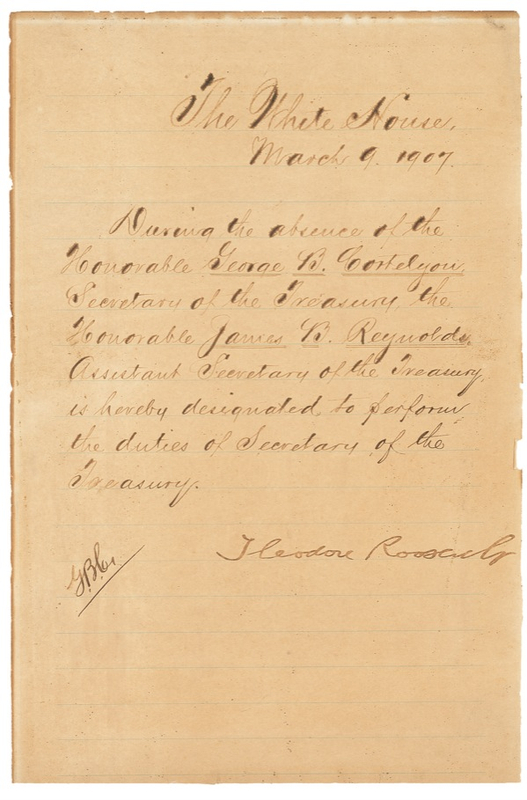 The White House,
March 9. 1907.
During the absence of the
Honorable George B. Cortelyou,
Secretary of the Treasury, the
Honorable James B. Reynolds,
Assistant Secretary of the Treasury,
is hereby designated to perform
the duties of Secretary of the
Treasury.
Theodore Roosevelt